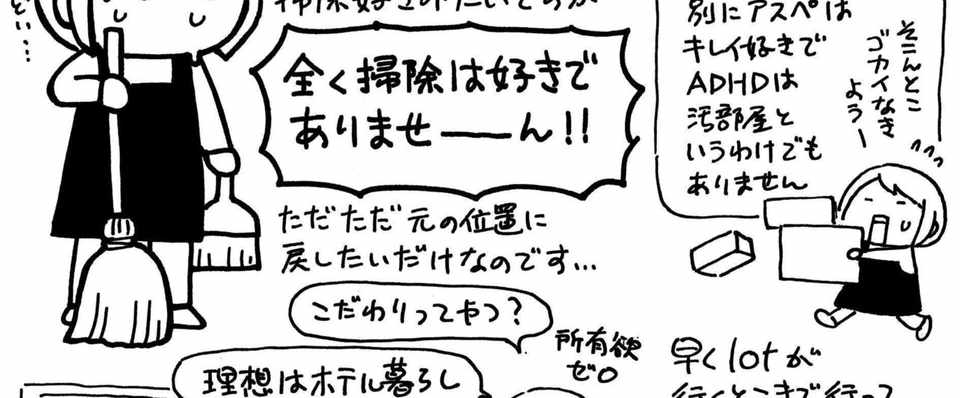 別にアスペは
キレイ好きで
ADHDは
汚部屋と
いうわけでも
ありません
そこんとこ
ゴカイなき
よう〜
全く掃除は好きで
ありませーーん!!
ただただ元の位置に
戻したいだけなのです…
こだわりってやつ?
所有欲
ゼロ
理想はホテル暮らし
早くIotが